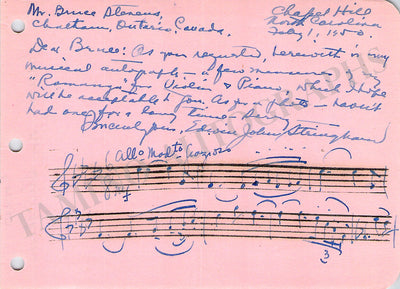 Mr. Bruce Stevens, Chapel Hill
Chatham, Ontario, Canada. North Carolina
July 1, 1950
Dear Bruce: As you requested, herewith is my
musical autograph - a few measures of my
"Romanza for Violin & Piano," which I hope
will be acceptable to you. As for a photo - haven't
had one for a long time. So sorry.
Sincerely yours, Edwin John Stringham
Allo modto grazioso
f
3
3
TAMINO AUTOGRAPHS